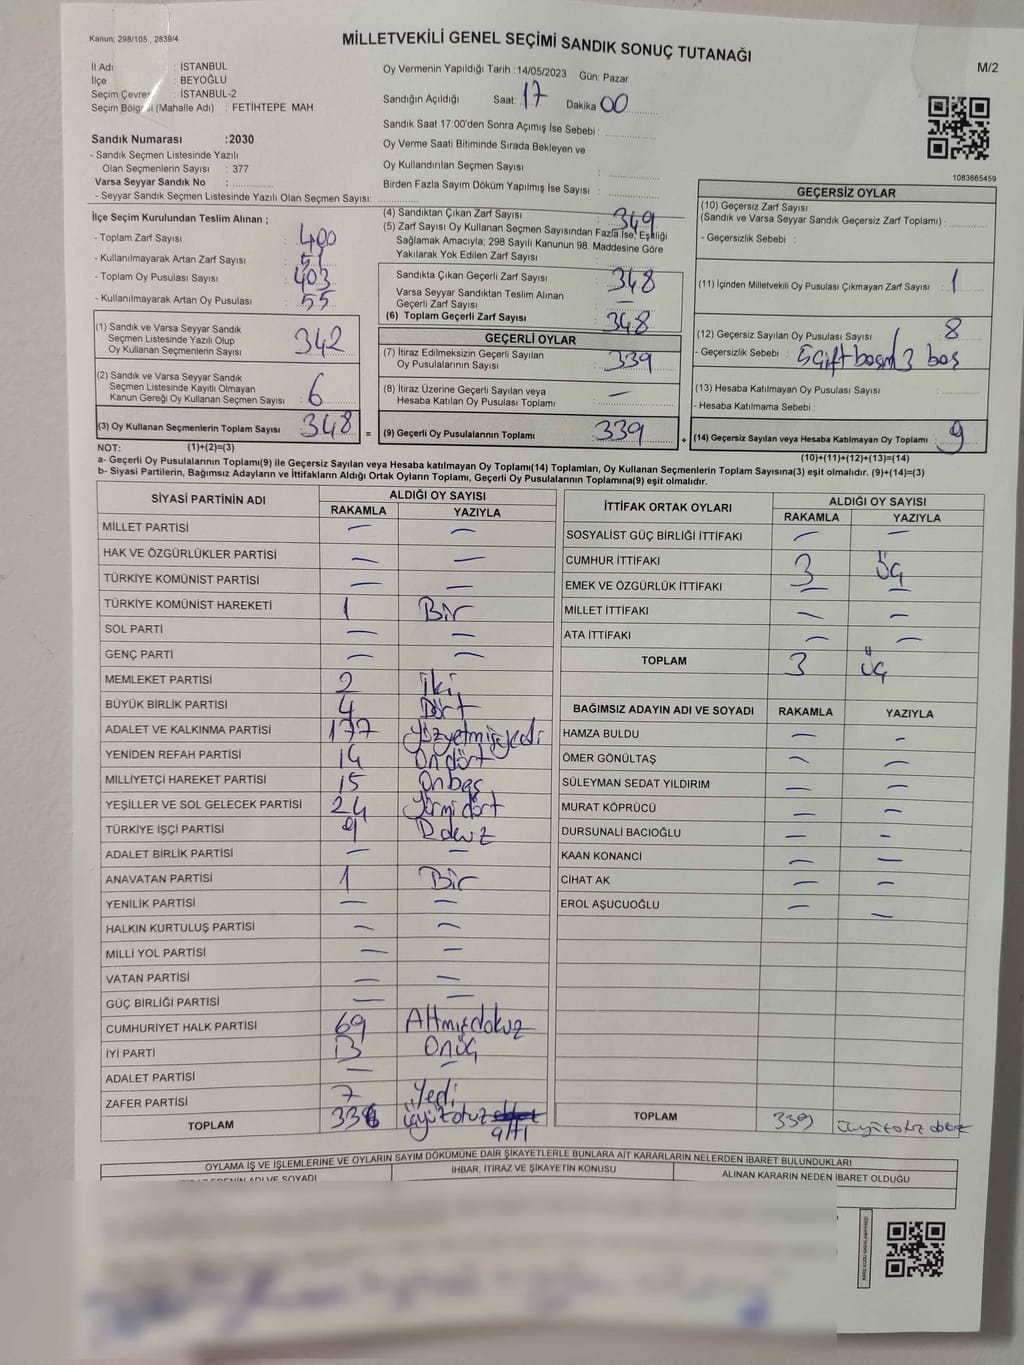 Kanun: 298/105 , 2839/4
MİLLETVEKİLİ GENEL SEÇİMİ SANDIK SONUÇ TUTANAĞI
M/2
İl Adı : İSTANBUL
İlçe : BEYOĞLU
Seçim Çevresi : İSTANBUL-2
Seçim Bölgesi (Mahalle Adı) : FETİHTEPE MAH.
Oy Vermenin Yapıldığı Tarih : 14/05/2023 Gün: Pazar
Sandığın Açıldığı Saat: 17 Dakika 00
Sandık Saat 17:00'den Sonra Açımış İse Sebebi :
Oy Verme Saati Bitiminde Sırada Bekleyen ve
Oy Kullandırılan Seçmen Sayısı :
Birden Fazla Sayım Döküm Yapılmış İse Sayısı :
Sandık Numarası : 2030
- Sandık Seçmen Listesinde Yazılı
Olan Seçmenlerin Sayısı : 377
Varsa Seyyar Sandık No :
- Seyyar Sandık Seçmen Listesinde Yazılı Olan Seçmen Sayısı:
1083665459
İlçe Seçim Kurulundan Teslim Alınan ;
- Toplam Zarf Sayısı : 400
- Kullanılmayarak Artan Zarf Sayısı : 51
- Toplam Oy Pusulası Sayısı : 403
- Kullanılmayarak Artan Oy Pusulası : 55
(1) Sandık ve Varsa Seyyar Sandık
Seçmen Listesinde Yazılı Olup
Oy Kullanan Seçmenlerin Sayısı : 342
(2) Sandık ve Varsa Seyyar Sandık
Seçmen Listesinde Kayıtlı Olmayan
Kanun Gereği Oy Kullanan Seçmen Sayısı : 6
(3) Oy Kullanan Seçmenlerin Toplam Sayısı : 348
(4) Sandıktan Çıkan Zarf Sayısı : 349
(5) Zarf Sayısı Oy Kullanan Seçmen Sayısından Fazla İse, Eşitliği
Sağlamak Amacıyla; 298 Sayılı Kanunun 98. Maddesine Göre
Yakılarak Yok Edilen Zarf Sayısı :
Sandıkta Çıkan Geçerli Zarf Sayısı : 348
Varsa Seyyar Sandıktan Teslim Alınan
Geçerli Zarf Sayısı : —
(6) Toplam Geçerli Zarf Sayısı : 348
GEÇERLİ OYLAR
(7) İtiraz Edilmeksizin Geçerli Sayılan
Oy Pusulalarının Sayısı : 339
(8) İtiraz Üzerine Geçerli Sayılan veya
Hesaba Katılan Oy Pusulası Toplamı : —
= (9) Geçerli Oy Pusulalarının Toplamı : 339
GEÇERSİZ OYLAR
(10) Geçersiz Zarf Sayısı
(Sandık ve Varsa Seyyar Sandık Geçersiz Zarf Toplamı) :
- Geçersizlik Sebebi :
(11) İçinden Milletvekili Oy Pusulası Çıkmayan Zarf Sayısı : 1
(12) Geçersiz Sayılan Oy Pusulası Sayısı : 8
- Geçersizlik Sebebi : 5 çift basım 3 boş
(13) Hesaba Katılmayan Oy Pusulası Sayısı :
- Hesaba Katılmama Sebebi :
+ (14) Geçersiz Sayılan veya Hesaba Katılmayan Oy Toplamı : 9
NOT: (1)+(2)=(3)
(10)+(11)+(12)+(13)=(14)
a- Geçerli Oy Pusulalarının Toplamı(9) ile Geçersiz Sayılan veya Hesaba katılmayan Oy Toplamı(14) Toplamları, Oy Kullanan Seçmenlerin Toplam Sayısına(3) eşit olmalıdır. (9)+(14)=(3)
b- Siyasi Partilerin, Bağımsız Adayların ve İttifakların Aldığı Ortak Oyların Toplamı, Geçerli Oy Pusulalarının Toplamına(9) eşit olmalıdır.
SİYASİ PARTİNİN ADI ALDIĞI OY SAYISI
RAKAMLA YAZIYLA
MİLLET PARTİSİ — —
HAK VE ÖZGÜRLÜKLER PARTİSİ — —
TÜRKİYE KOMÜNİST PARTİSİ — —
TÜRKİYE KOMÜNİST HAREKETİ 1 Bir
SOL PARTİ — —
GENÇ PARTİ — —
MEMLEKET PARTİSİ 2 İki
BÜYÜK BİRLİK PARTİSİ 4 Dört
ADALET VE KALKINMA PARTİSİ 177 Yüzyetmişyedi
YENİDEN REFAH PARTİSİ 14 Ondört
MİLLİYETÇİ HAREKET PARTİSİ 15 Onbeş
YEŞİLLER VE SOL GELECEK PARTİSİ 24 Yirmidört
TÜRKİYE İŞÇİ PARTİSİ 9 Dokuz
ADALET BİRLİK PARTİSİ — —
ANAVATAN PARTİSİ 1 Bir
YENİLİK PARTİSİ — —
HALKIN KURTULUŞ PARTİSİ — —
MİLLİ YOL PARTİSİ — —
VATAN PARTİSİ — —
GÜÇ BİRLİĞİ PARTİSİ — —
CUMHURİYET HALK PARTİSİ 69 Altmışdokuz
İYİ PARTİ 13 Onüç
ADALET PARTİSİ — —
ZAFER PARTİSİ 7 Yedi
TOPLAM 336 üçyüzotuz altı
İTTİFAK ORTAK OYLARI ALDIĞI OY SAYISI
RAKAMLA YAZIYLA
SOSYALİST GÜÇ BİRLİĞİ İTTİFAKI — —
CUMHUR İTTİFAKI 3 Üç
EMEK VE ÖZGÜRLÜK İTTİFAKI — —
MİLLET İTTİFAKI — —
ATA İTTİFAKI — —
TOPLAM 3 Üç
BAĞIMSIZ ADAYIN ADI VE SOYADI RAKAMLA YAZIYLA
HAMZA BULDU — —
ÖMER GÖNÜLTAŞ — —
SÜLEYMAN SEDAT YILDIRIM — —
MURAT KÖPRÜCÜ — —
DURSUNALİ BACIOĞLU — —
KAAN KONANCİ — —
CİHAT AK — —
EROL AŞUCUOĞLU — —
TOPLAM 339 üçyüzotuz dokuz
OYLAMA İŞ VE İŞLEMLERİNE VE OYLARIN SAYIM DÖKÜMÜNE DAİR ŞİKAYETLERLE BUNLARA AİT KARARLARIN NELERDEN İBARET BULUNDUKLARI
ADI VE SOYADI İHBAR, İTİRAZ VE ŞİKAYETİN KONUSU ALINAN KARARIN NEDEN İBARET OLDUĞU